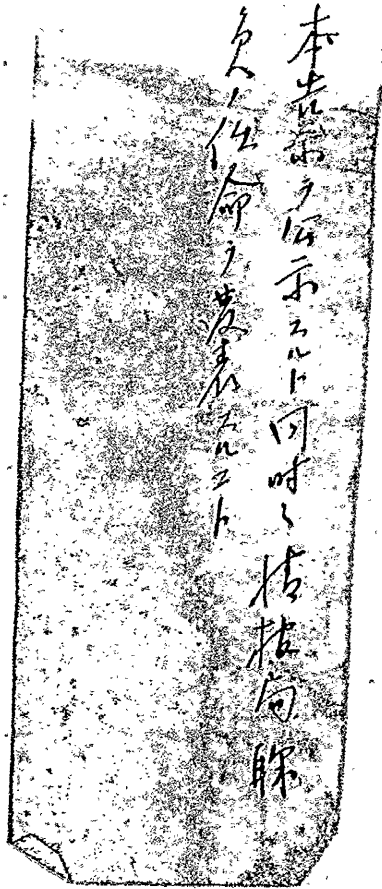 本告示ヲ公示スルト同時ニ情報局職
員ノ任命ヲ発表スルコト